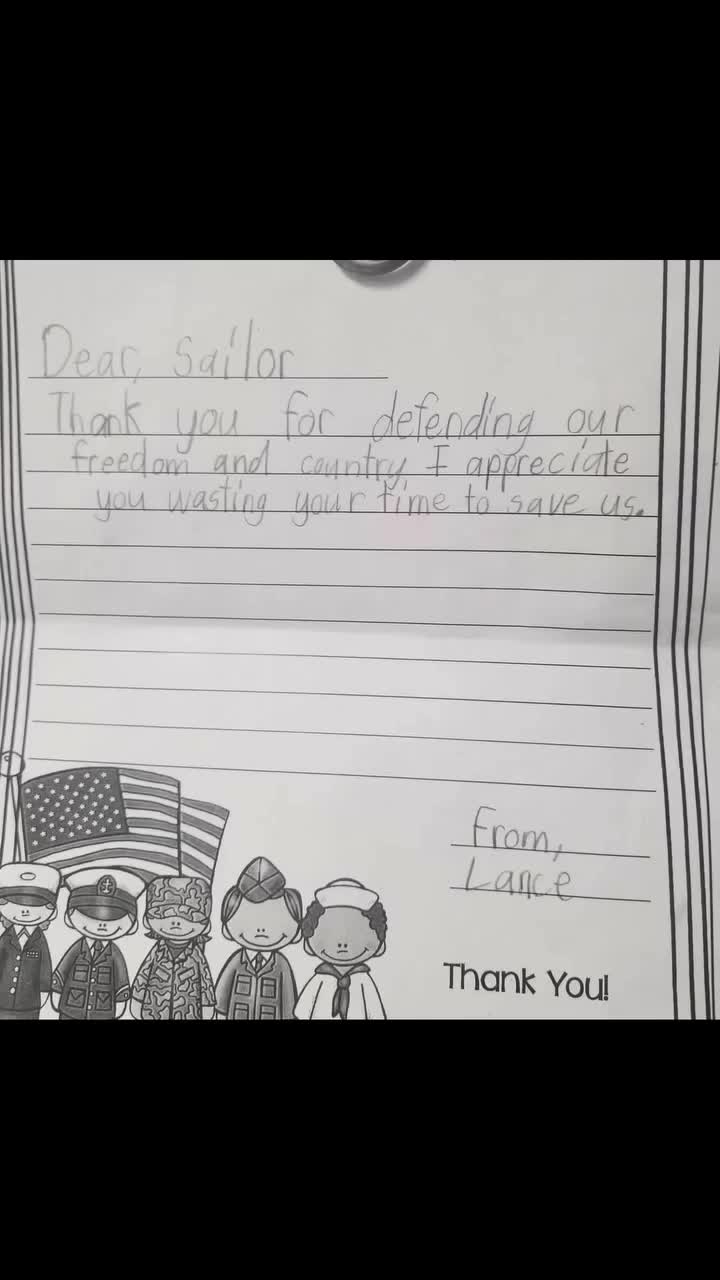 Dear, Sailor
Thank you for defending our
freedom and country. I appreciate
you wasting your time to save us.
From,
Lance
Thank You!